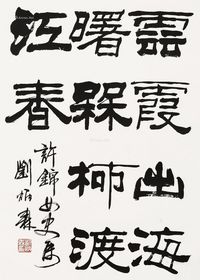 雲霞出海
曙楳柳渡
江春
許錦女史屬
劉炳森